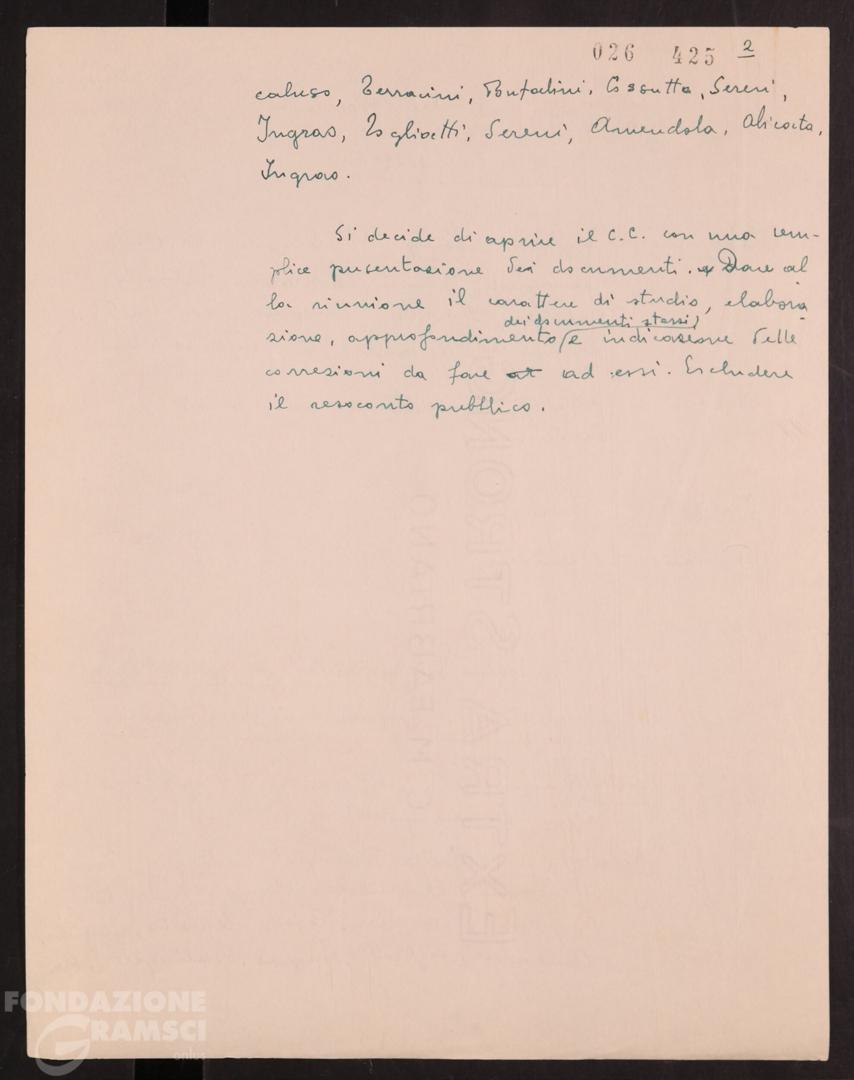 026 425 2
caluso, Terracini, Bufalini, Cossutta, Sereni,
Ingrao, Togliatti, Sereni, Amendola, Alicata,
Ingrao.
Si decide di aprire il C.C. con una sem-
plice presentazione dei documenti. Dare al
la riunione il carattere di studio, elabora
dei documenti stessi,
zione, approfondimento e indicazione delle
correzioni da fare ad essi. Escludere
il resoconto pubblico.
C.M.FABRIANO
EXTRA STRONG
FONDAZIONE
GRAMSCI
onlus